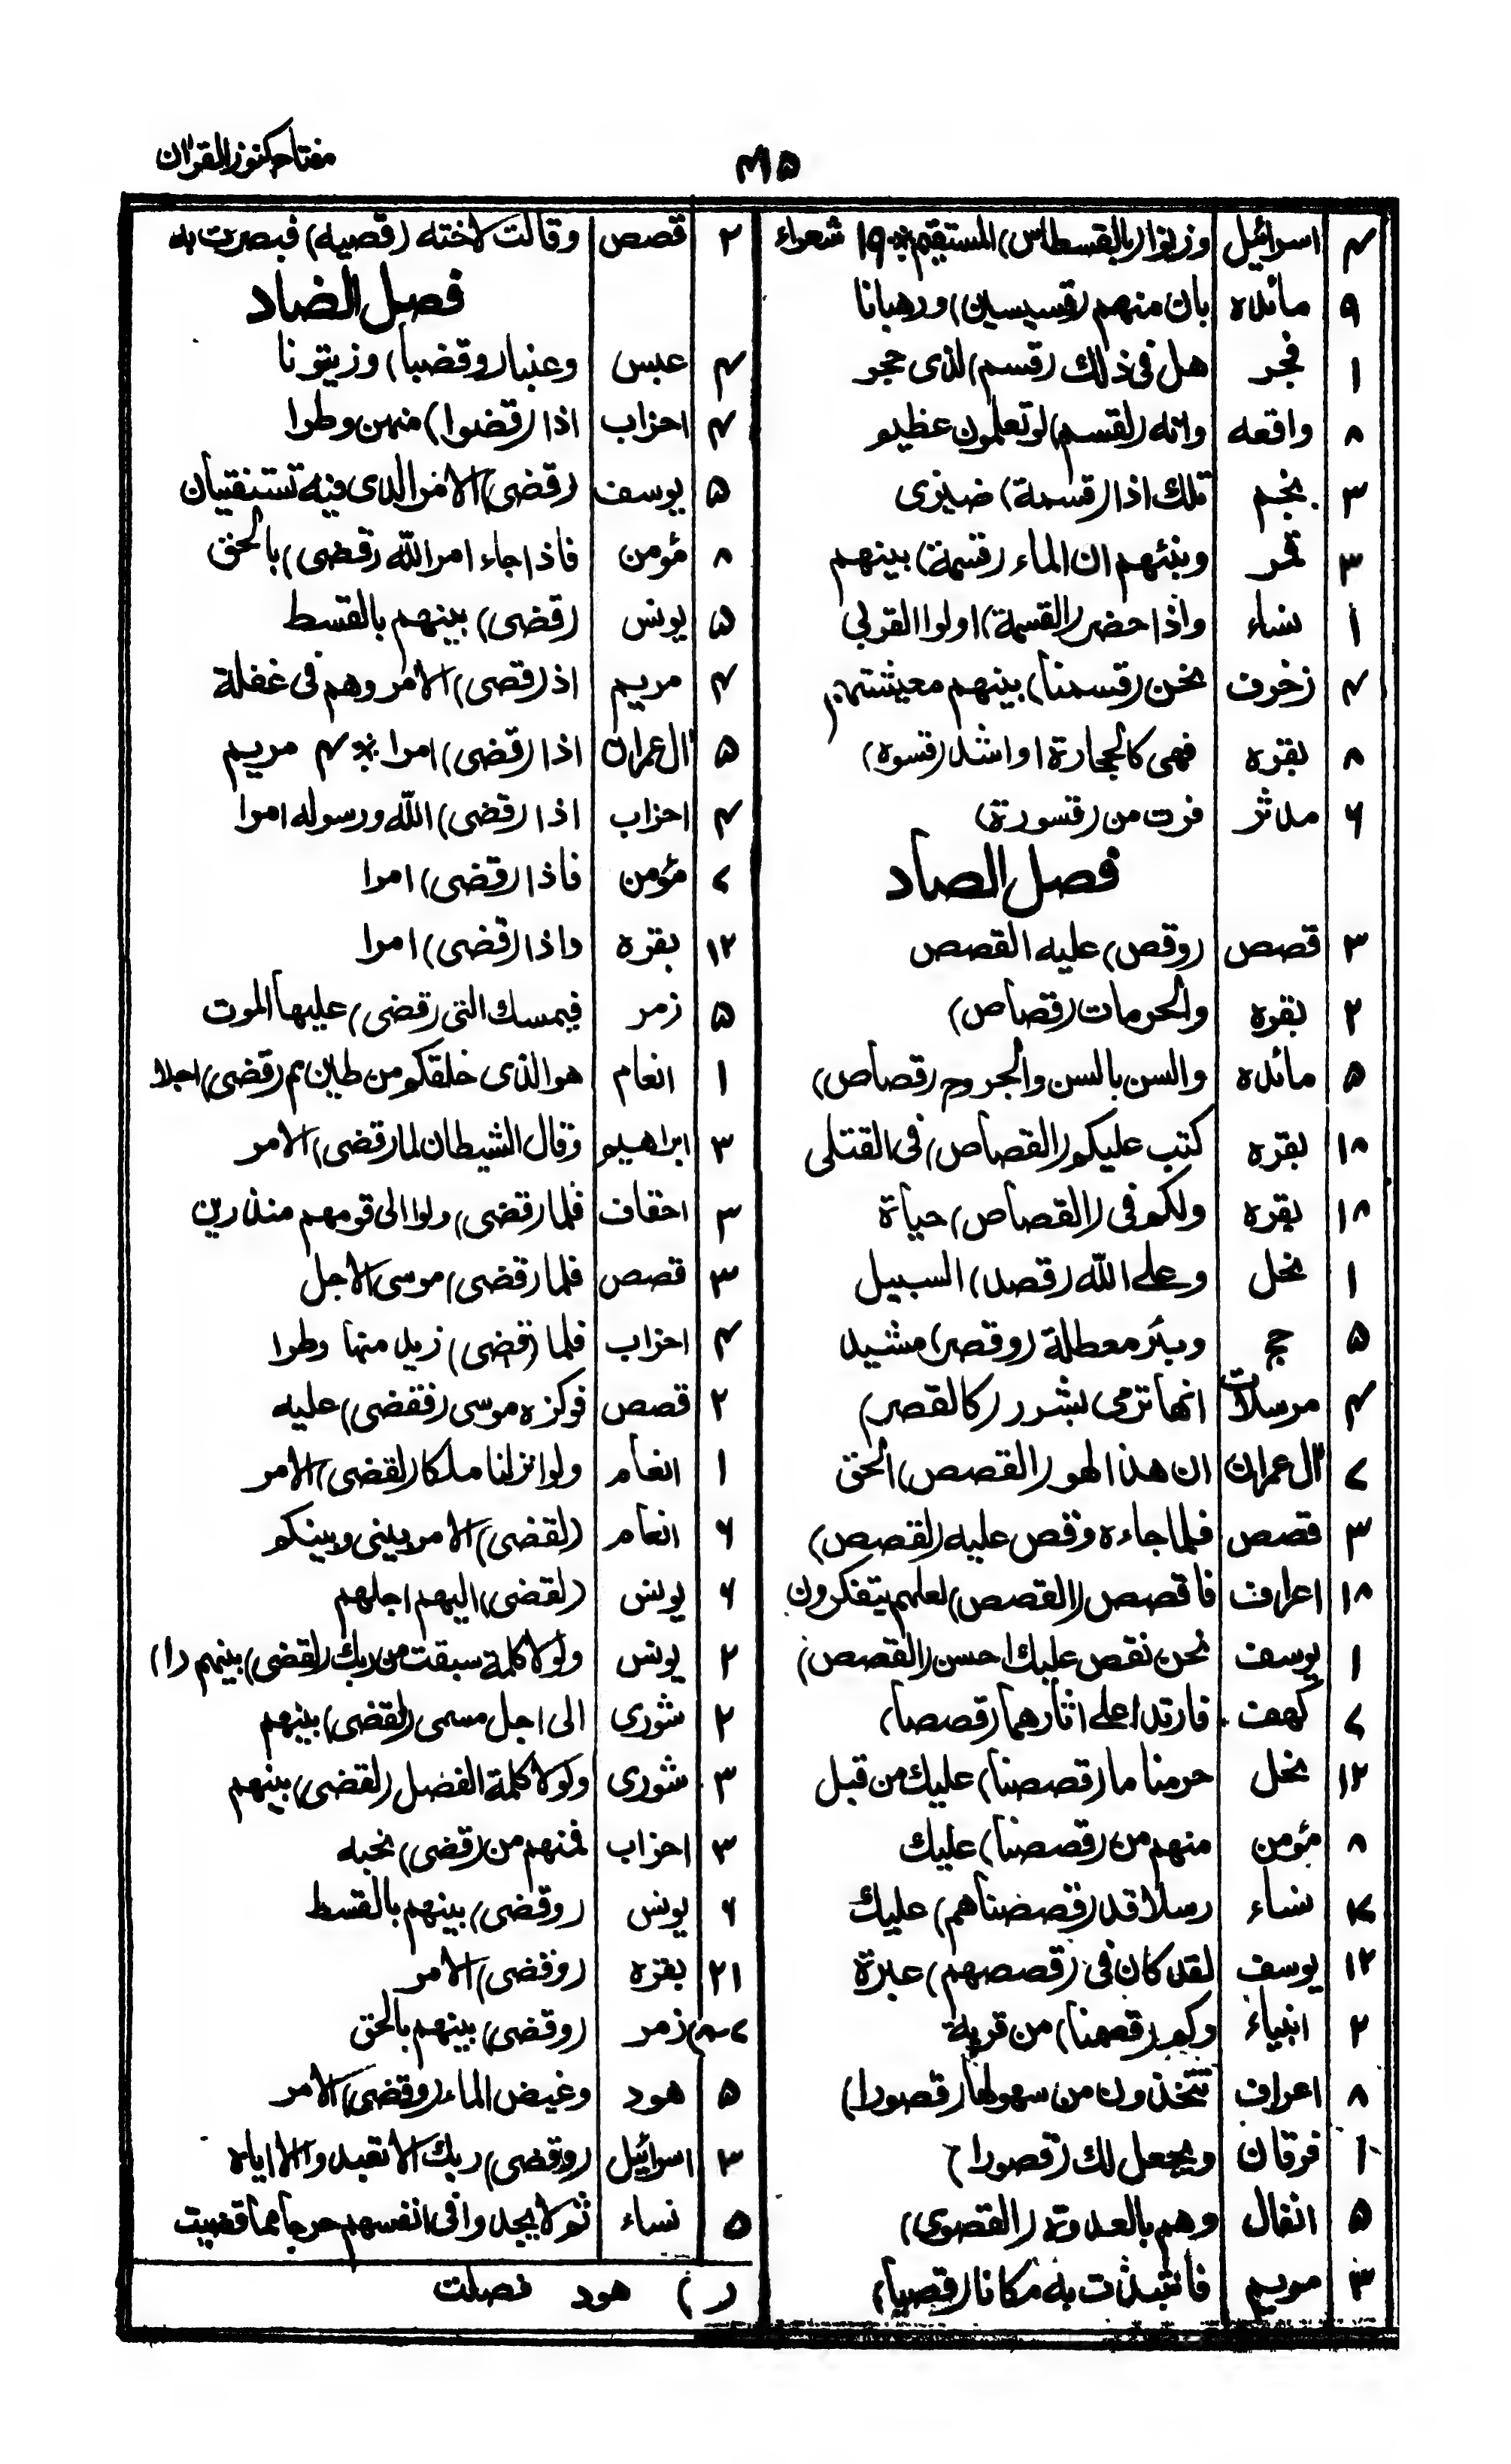 مفتاح كنوز القرآن
۴۱۵
۴ اسرائيل وزنوا (بالقسطاس) المستقيم ※ ۱۹ شعراء
۹ مائده بان منهم (قسيسين) ورهبانا
۱ فجر هل فى ذلك (قسم) لذى حجر
۸ واقعه وانه (لقسم) لو تعلمون عظيم
۳ نجم تلك اذا (قسمة) ضيزى
۳ قمر ونبئهم ان الماء (قسمة) بينهم
۱ نساء واذا حضر (القسمة) اولوا القربى
۴ زخرف نحن (قسمنا) بينهم معيشتهم
۸ بقره فهى كالحجارة او اشد (قسوه)
۶ مدثر فرت من (قسورة)
فصل الصاد
۳ قصص (وقص) عليه القصص
۲ بقره والحرمات (قصاص)
۵ مائده والسن بالسن والجروح (قصاص)
۱۸ بقره كتب عليكم (القصاص) فى القتلى
۱۸ بقره ولكم فى (القصاص) حياة
۱ نحل وعلى الله (قصد) السبيل
۵ حج وبئر معطلة (وقصر) مشيد
۴ مرسلات انها ترمى بشرر (كالقصر)
۷ آل عمران ان هذا لهو (القصص) الحق
۳ قصص فلما جاءه وقص عليه (لقصص)
۱۸ اعراف فاقصص (القصص) لعلهم يتفكرون
۱ يوسف نحن نقص عليك احسن (القصص)
۷ كهف فارتدا على اثارهما (قصصا)
۱۲ نحل حرمنا ما (قصصنا) عليك من قبل
۸ مؤمن منهم من (قصصنا) عليك
نساء رسلا قد (قصصناهم) عليك
۱۲ يوسف لقد كان فى (قصصهم) عبرة
۲ انبياء وكم (قصمنا) من قرية
۸ اعراف تتخذون من سهولها (قصورا)
۱ فرقان ويجعل لك (قصورا)
۵ انفال وهم بالعدوة (القصوى)
۳ مريم فانتبذت به مكانا (قصيا)
۲ قصص وقالت لاخته (قصيه) فبصرت به
فصل الضاد
۴ عبس وعنبا (وقضبا) وزيتونا
۴ احزاب اذا (قضوا) منهن وطرا
۵ يوسف (قضى) الامر الذى فيه تستفتيان
۸ مؤمن فاذا جاء امر الله (قضى) بالحق
۵ يونس (قضى) بينهم بالقسط
۴ مريم اذ (قضى) الامر وهم فى غفلة
۵ آل عمران اذا (قضى) امرا ※ ۴ مريم
۴ احزاب اذا (قضى) الله ورسوله امرا
۷ مؤمن فاذا (قضى) امرا
۱۲ بقره واذا (قضى) امرا
۵ زمر فيمسك التى (قضى) عليها الموت
۱ انعام هو الذى خلقكم من طين ثم (قضى) اجلا
۳ ابراهيم وقال الشيطان لما (قضى) الامر
۳ احقاف فلما (قضى) ولوا الى قومهم منذرين
۳ قصص فلما (قضى) موسى الاجل
۴ احزاب فلما (قضى) زيد منها وطرا
۲ قصص فوكزه موسى (فقضى) عليه
۱ انعام ولو انزلنا ملكا (لقضى) الامر
۶ انعام (لقضى) الامر بينى وبينكم
۶ يونس (لقضى) اليهم اجلهم
۲ يونس ولولا كلمة سبقت من ربك (لقضى) بينهم (۱)
۲ شورى الى اجل مسمى (لقضى) بينهم
۳ شورى ولولا كلمة الفصل (لقضى) بينهم
۳ احزاب فمنهم من (قضى) نحبه
۶ يونس (وقضى) بينهم بالقسط
۲۱ بقره (وقضى) الامر
۷-۸ زمر (وقضى) بينهم بالحق
۵ هود وغيض الماء (وقضى) الامر
۳ اسرائيل (وقضى) ربك الا تعبدوا الا اياه
۵ نساء ثم لا يجدوا فى انفسهم حرجا مما قضيت
(ر) هود فصلت